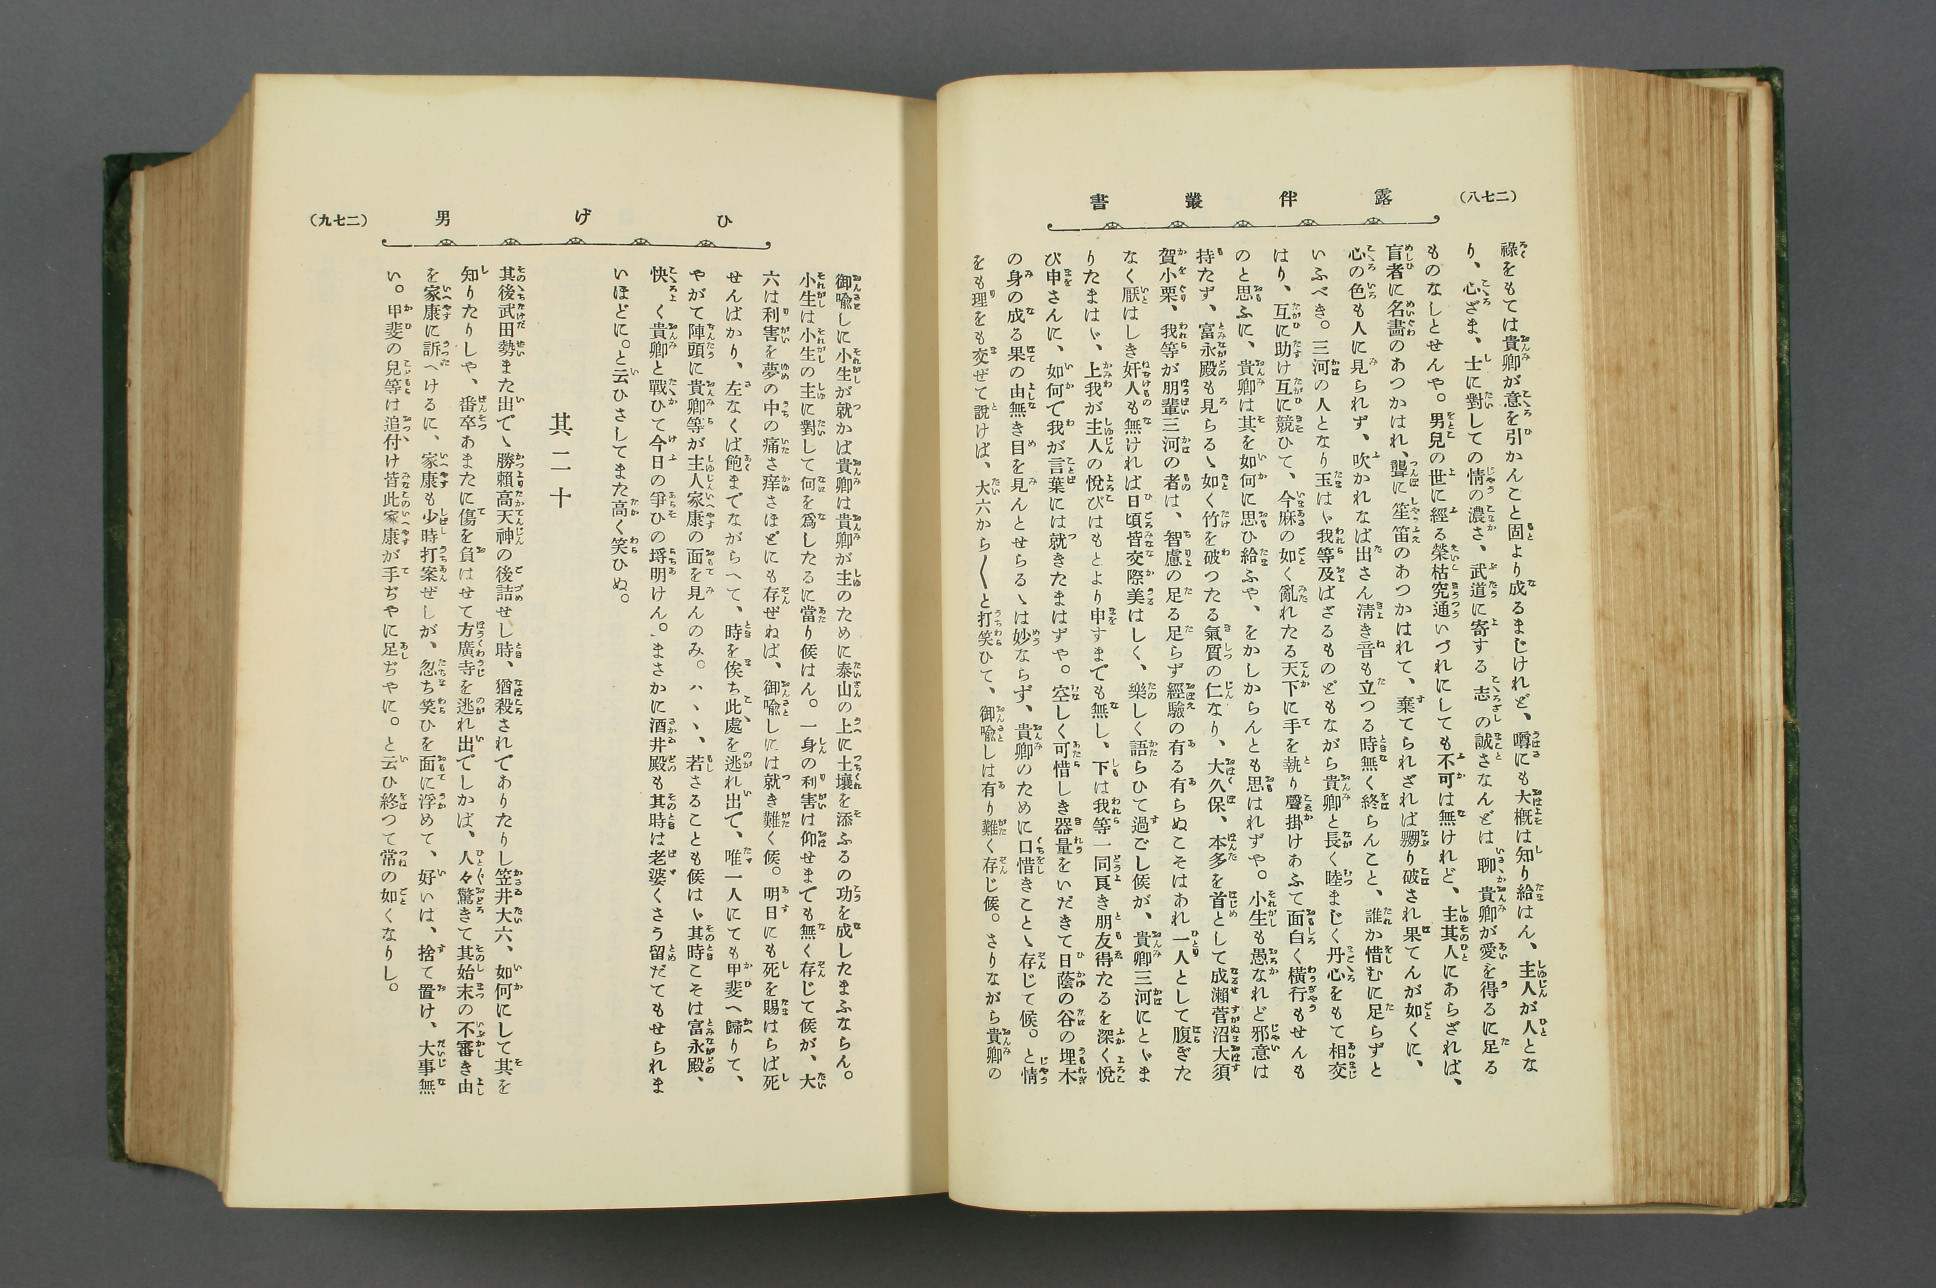 (二七八)
露伴叢書
祿をもては貴卿が意を引かんこと固より成るまじけれど、噂にも大概は知り給はん、主人が人とな
り、心ざま、士に對しての情の濃さ、武道に寄する志の誠さなんどは聊貴卿が愛を得るに足る
ものなしとせんや。男兒の世に經る榮枯究通いづれにしても不可は無けれど、主其人にあらざれば、
盲者に名畵のあつかはれ、聾に笙笛のあつかはれて、棄てられざれば嬲り破され果てんが如くに、
心の色も人に見られず、吹かれなば出さん淸き音も立つる時無く終らんこと、誰か惜むに足らずと
いふべき。三河の人となり玉はゞ我等及ばざるものどもながら貴卿と長く睦まじく丹心をもて相交
はり、互に助け互に競ひて、今麻の如く亂れたる天下に手を執り聲掛けあふて面白く橫行もせんも
のと思ふに、貴卿は其を如何に思ひ給ふや、をかしからんとも思はれずや。小生も愚なれど邪意は
持たず、富永殿も見らるゝ如く竹を破つたる氣質の仁なり、大久保、本多を首として成瀨菅沼大須
賀小栗、我等が朋輩三河の者は、智慮の足る足らず經驗の有る有らぬこそはあれ一人として腹ぎた
なく厭はしき奸人も無ければ日頃皆交際美はしく、樂しく語らひて過ごし候が、貴卿三河にとゞま
りたまはゞ、上我が主人の悅びはもとより申すまでも無し、下は我等一同良き朋友得たるを深く悅
び申さんに、如何で我が言葉には就きたまはずや。空しく可惜しき器量をいだきて日蔭の谷の埋木
の身の成る果の由無き目を見んとせらるゝは妙ならず、貴卿のために口惜きことゝ存じて候。と情
をも理をも交ぜて說けば、大六から〱と打笑ひて、御喩しは有り難く存じ候。さりながら貴卿の
ひげ男
(二七九)
御喩しに小生が就かば貴卿は貴卿が主のために泰山の上に土壤を添ふるの功を成したまふならん。
小生は小生の主に對して何を爲したるに當り候はん。一身の利害は仰せまでも無く存じて候が、大
六は利害を夢の中の痛さ痒さほどにも存ぜねば、御喩しには就き難く候。明日にも死を賜はらば死
せんばかり、左なくば飽までながらへて、時を俟ち此處を逃れ出で、唯一人にても甲斐へ歸りて、
やがて陣頭に貴卿等が主人家康の面を見んのみ。ハヽヽ、若さることも候はゞ其時こそは富永殿、
快く貴卿と戰ひて今日の爭ひの埓明けん。まさかに酒井殿も其時は老婆くさう留だてもせられま
いほどに。と云ひさしてまた高く笑ひぬ。
其二十
其後武田勢また出でゝ勝賴高天神の後詰せし時、猶殺されてありたりし笠井大六、如何にして其を
知りたりしや、番卒あまたに傷を負はせて方廣寺を逃れ出でしかば、人々驚きて其始末の不審き由
を家康に訴へけるに、家康も少時打案ぜしが、忽ち笑ひを面に浮めて、好いは、捨て置け、大事無
い。甲斐の兒等は追付け皆此家康が手ぢやに足ぢやに。と云ひ終つて常の如くなりし。